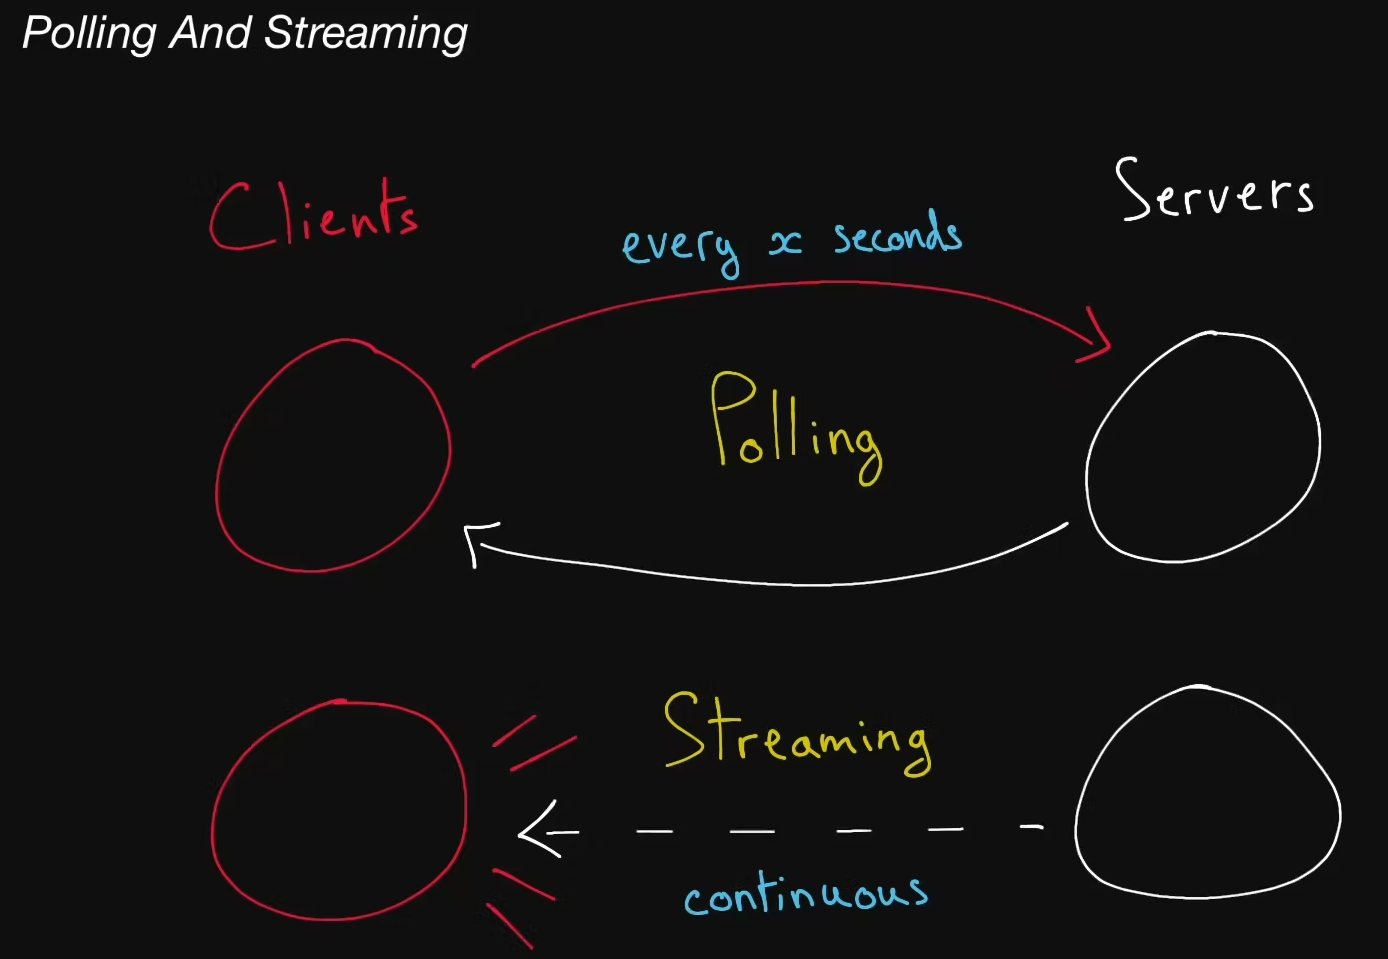 Polling And Streaming
Clients
Servers
every x seconds
Polling
Streaming
continuous